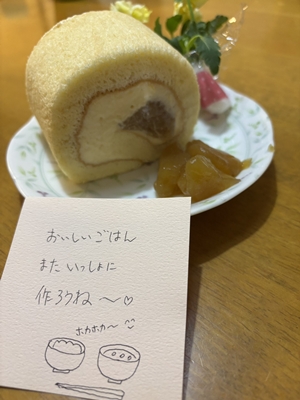 おいしいごはん
また いっしょに
作ろうね〜♡
ホカホカ〜